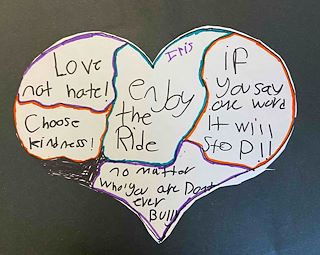 Love
not hate!
Choose
kindness!
enjoy
the
Ride
Iris
if
you say
one word
It will
stop!!
no matter
who you are Dont
ever
Bully